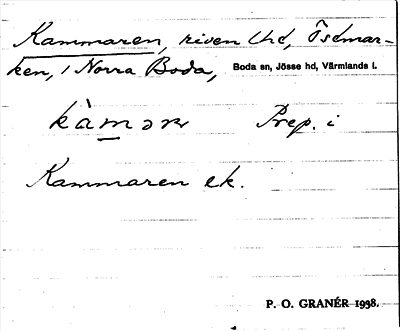 Kammaren, riven lhd, Ödmar-
ken, i Norra Boda, Boda sn, Jösse hd, Värmlands l.
kàmarn Prep. i
Kammaren ek.
P. O. GRANÉR 1938.